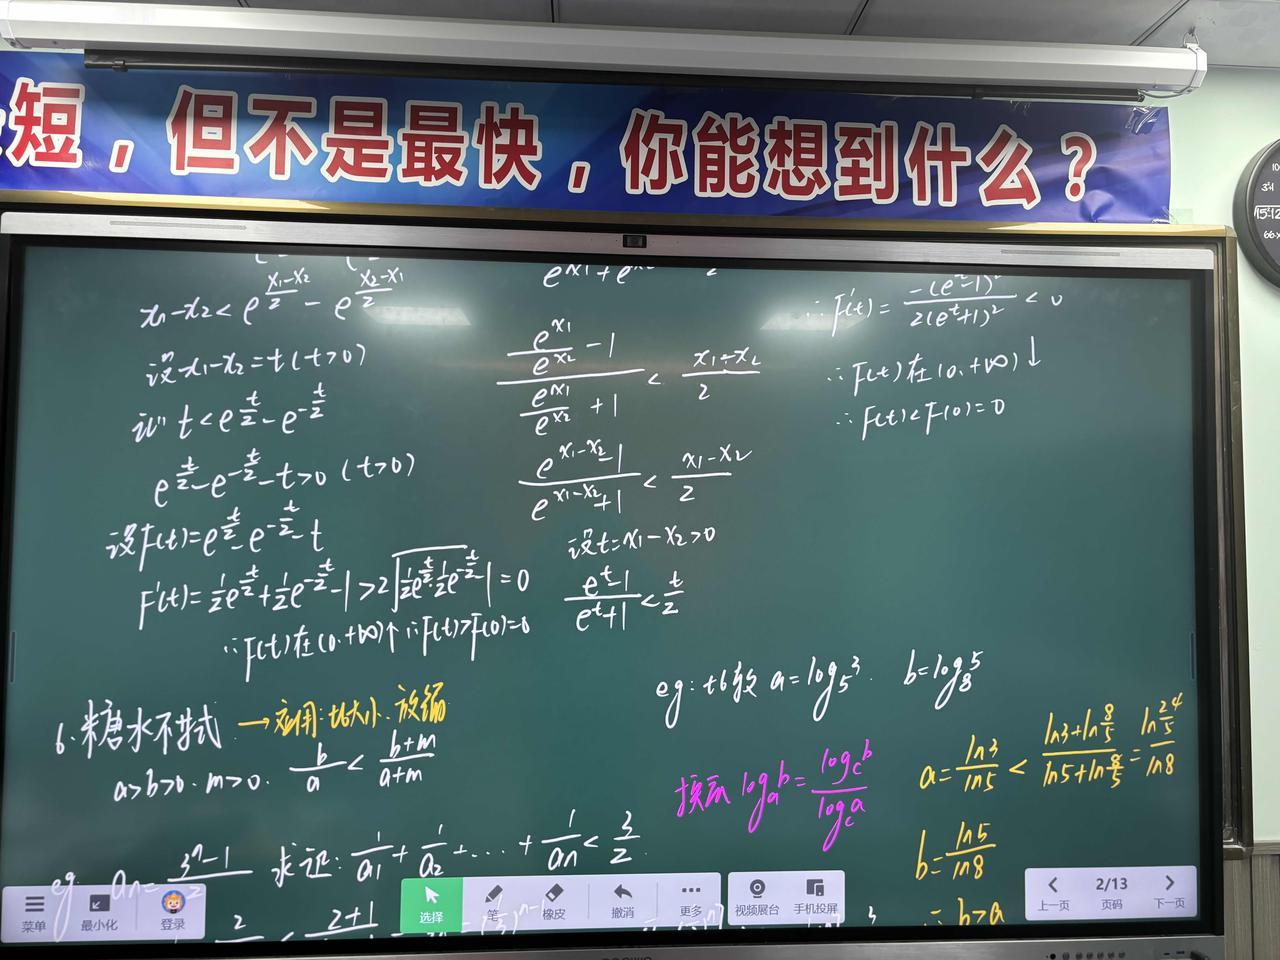 短，但不是最快，你能想到什么？
x₁-x₂ < e^((x₁-x₂)/2) - e^((x₂-x₁)/2)
设x₁-x₂=t(t>0)
t < e^(t/2) - e^(-t/2)
e^(t/2) - e^(-t/2) - t>0 (t>0)
设F(t)=e^(t/2) - e^(-t/2) - t
F'(t)=1/2 e^(t/2) + 1/2 e^(-t/2) - 1 > 2√(1/2 e^(t/2)·1/2 e^(-t/2)) - 1 = 0
∴F(t)在(0,+∞)↑ ∴F(t)>F(0)=0
(e^x₁/e^x₂ - 1)/(e^x₁/e^x₂ + 1) < (x₁-x₂)/2
(e^(x₁-x₂) - 1)/(e^(x₁-x₂) + 1) < (x₁-x₂)/2
设t=x₁-x₂>0
(e^t - 1)/(e^t + 1) < t/2
∴F'(t)= -(e^t - 1)²/2(e^t+1)² < 0
∴F(t)在(0,+∞)↓
∴F(t)<F(0)=0
6.糖水不等式 → 应用:比大小.放缩
a>b>0. m>0. b/a < (b+m)/(a+m)
eg: an=(3^n-1)/2 求证: 1/a₁ + 1/a₂ + ... + 1/an < 3/2
eg:比较 a=log₅3. b=log₈5
换底 logₐb = log_c b/log_c a
a= ln3/ln5 < (ln3+ln 8/5)/(ln5+ln 8/5) = ln 24/5 / ln8
b= ln5/ln8
∴ b>a
菜单
最小化
登录
选择
笔
橡皮
撤消
更多
视频展台
手机投屏
上一页
2/13
页码
下一页